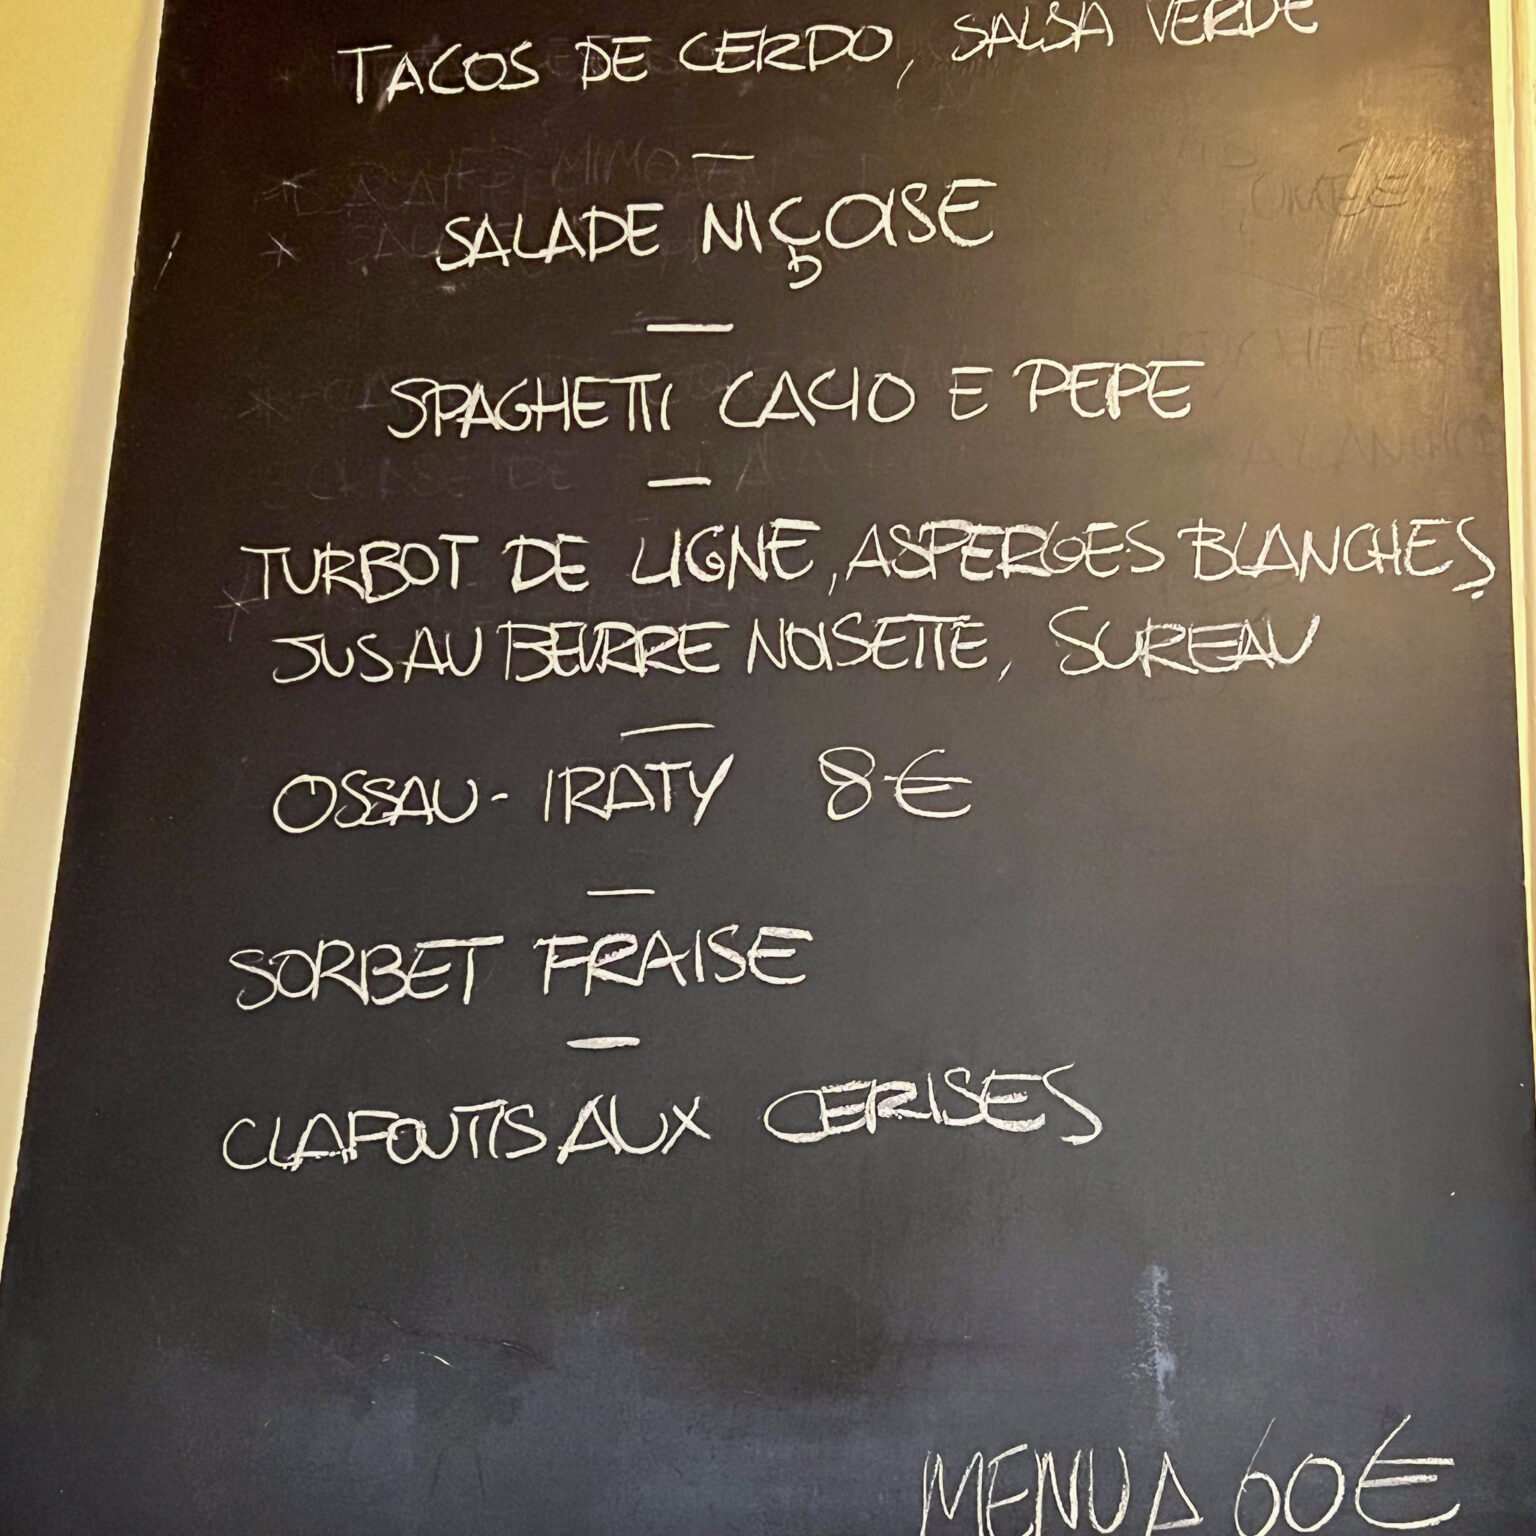 TACOS DE CERDO, SALSA VERDE
—
SALADE NIÇOISE
—
SPAGHETTI CACIO E PEPE
—
TURBOT DE LIGNE, ASPERGES BLANCHES,
JUS AU BEURRE NOISETTE, SUREAU
—
OSSAU-IRATY 8€
—
SORBET FRAISE
—
CLAFOUTIS AUX CERISES
MENU A 60€